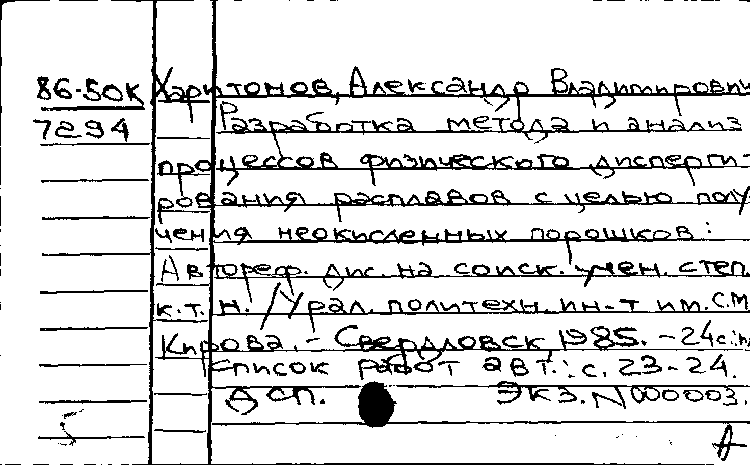 86-50К Харитонов, Александр Владимирович
7294 Разработка метода и анализ
процессов физического дисперги-
рования расплавов с целью полу-
чения неокисленных порошков:
Автореф. дис. на соиск. учен. степ.
к.т.н. /Урал. политехн. ин-т им. С.М.
Кирова. - Свердловск, 1985. - 24с.:
Список работ авт.: с. 23-24.
ДСП. ЭКЗ. N 000003.
5
А